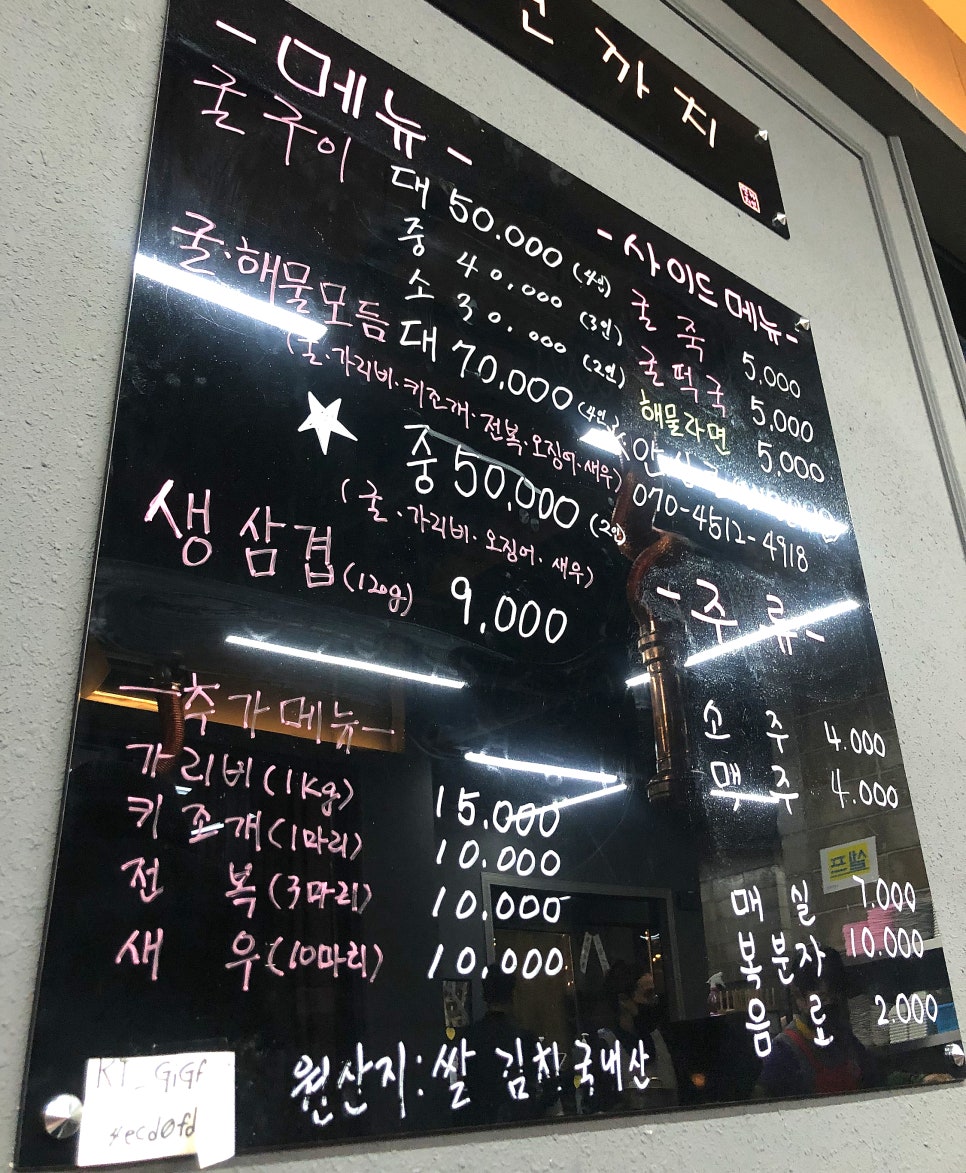 까지
- 메뉴 -
굴구이 대 50.000 (4인)
중 40.000 (3인)
소 30.000 (2인)
굴·해물모듬 대 70.000 (4인)
(굴·가리비·키조개·전복·오징어·새우)
중 50.000 (2인)
(굴·가리비·오징어·새우)
생삼겹 (120g) 9.000
- 추가메뉴 -
가리비 (1Kg) 15.000
키조개 (1마리) 10.000
전복 (3마리) 10.000
새우 (10마리) 10.000
- 사이드 메뉴 -
굴죽 5.000
굴떡국 5.000
해물라면 5.000
070-4512-4918
- 주류 -
소주 4.000
맥주 4.000
매실 7.000
복분자 10.000
음료 2.000
원산지: 쌀 김치 국내산
KT_GiGA
4ecd0fd